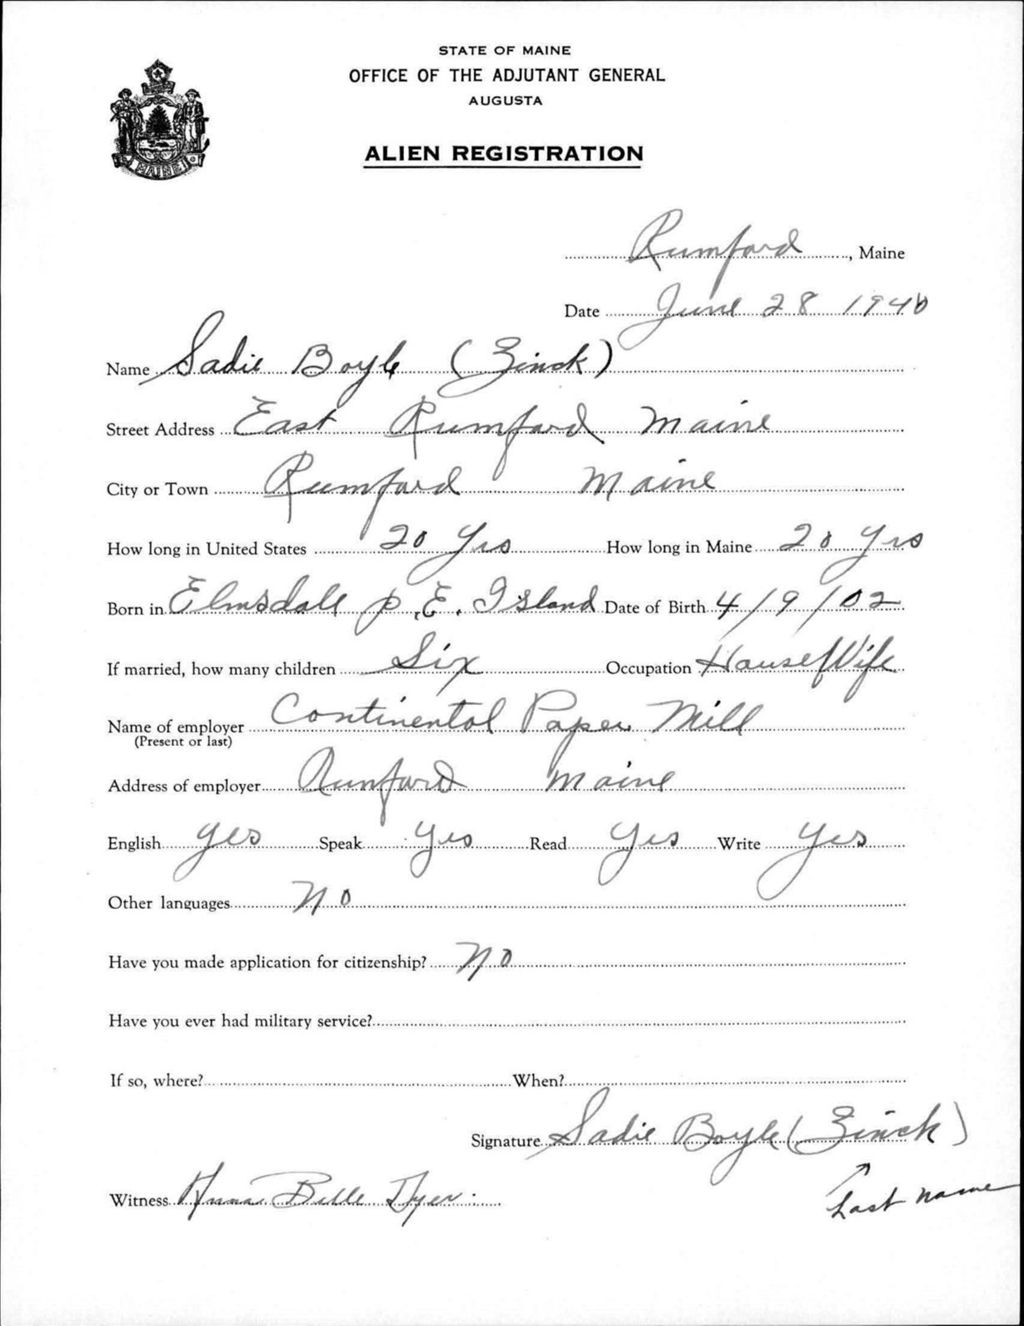 STATE OF MAINE
OFFICE OF THE ADJUTANT GENERAL
AUGUSTA
ALIEN REGISTRATION
MAINE
Rumford, Maine
Date June 28 1940
Name Sadie Boyle (Zinck)
Street Address East Rumford Maine
City or Town Rumford Maine
How long in United States 20 Yrs How long in Maine 20 Yrs
Born in Elmsdale P.E. Island Date of Birth 4/9/02
If married, how many children Six Occupation HouseWife
Name of employer Continental Paper Mill
(Present or last)
Address of employer Rumford Maine
English Yes Speak Yes Read Yes Write Yes
Other languages No
Have you made application for citizenship? No
Have you ever had military service?
If so, where? When?
Signature Sadie Boyle (Zinck)
Witness Anna Belle Dyer
Last name